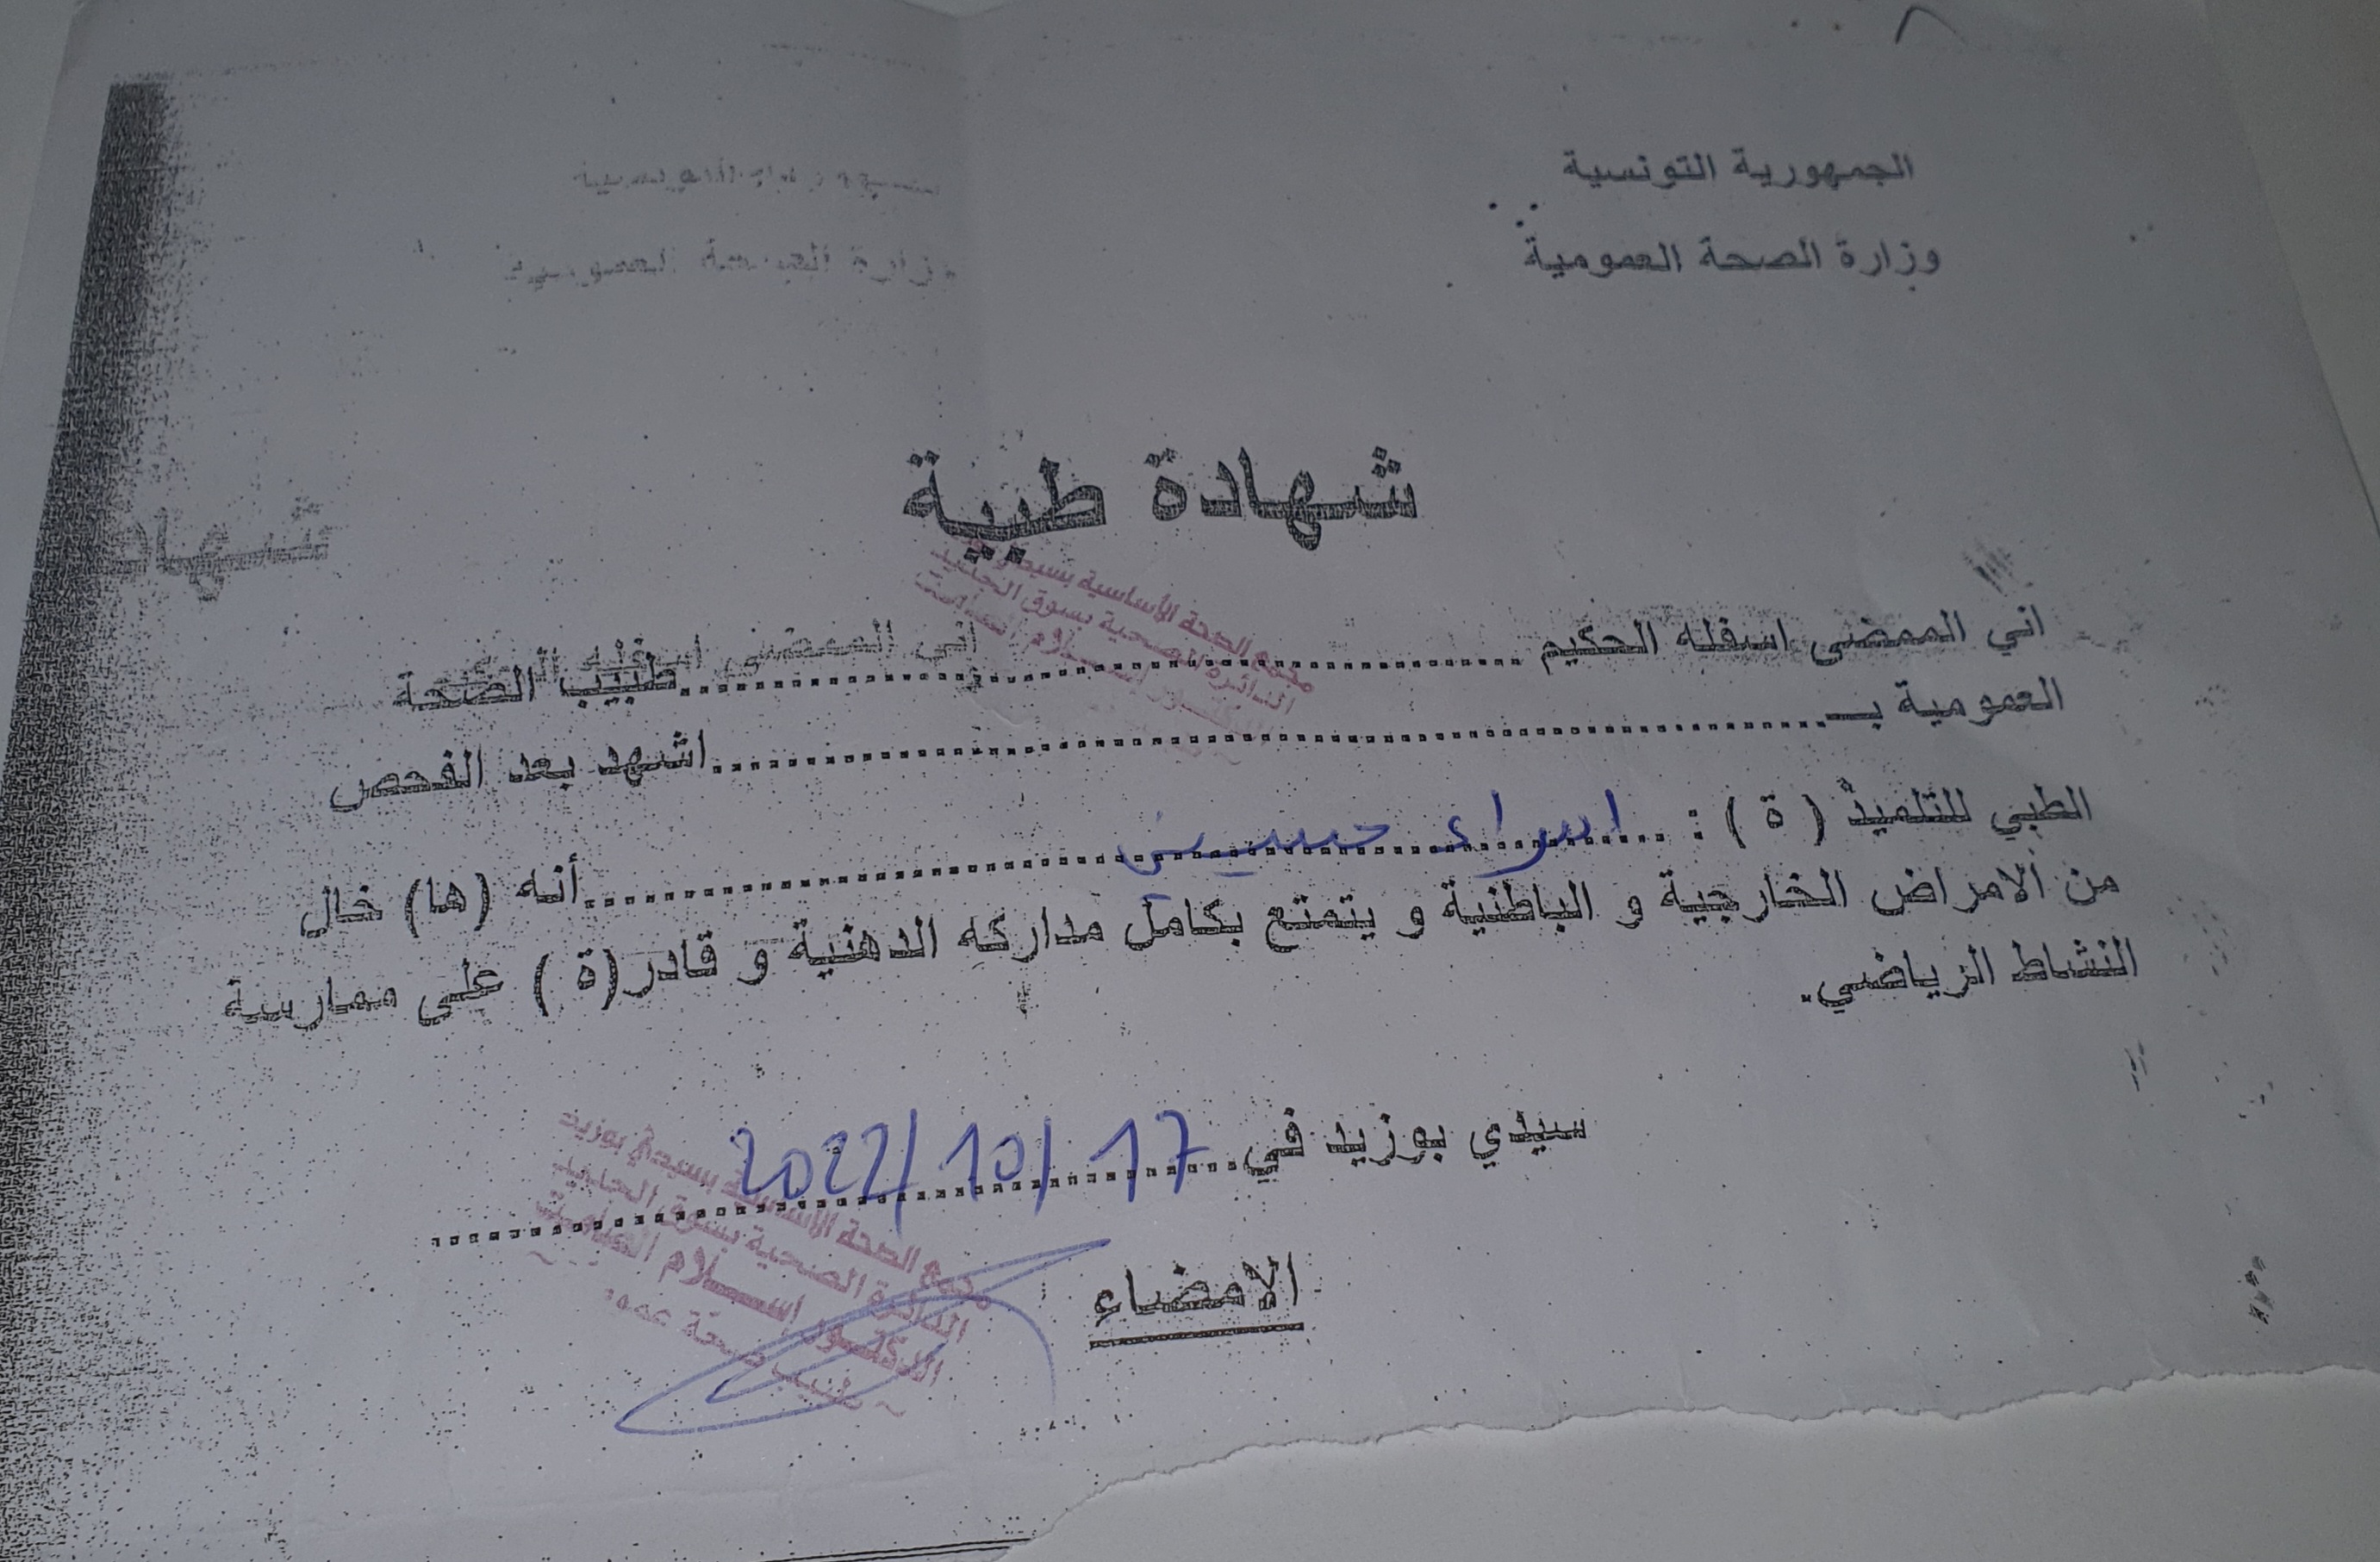 الجمهورية التونسية
وزارة الصحة العمومية
شهادة طبية
شهاد
مجمع الصحة الأساسية
الدائرة الصحية بسوق الجديد
اني الممضى اسفله الحكيم ........................ طبيب الصحة
اني الممضى اسفله
العمومية بـ ........................ اشهد بعد الفحص
الطبي للتلميذ ( ة ) : اسراء حسيني ........................ أنه (ها) خال
من الامراض الخارجية و الباطنية و يتمتع بكامل مداركه الدهنية و قادر(ة ) على ممارسة
النشاط الرياضي.
سيدي بوزيد في 2022/10/17
مجمع الصحة الأساسية بسيدي بوزيد
الدائرة الصحية بسوق الجديد
الدكتور اسلام
طبيب صحة
الامضاء